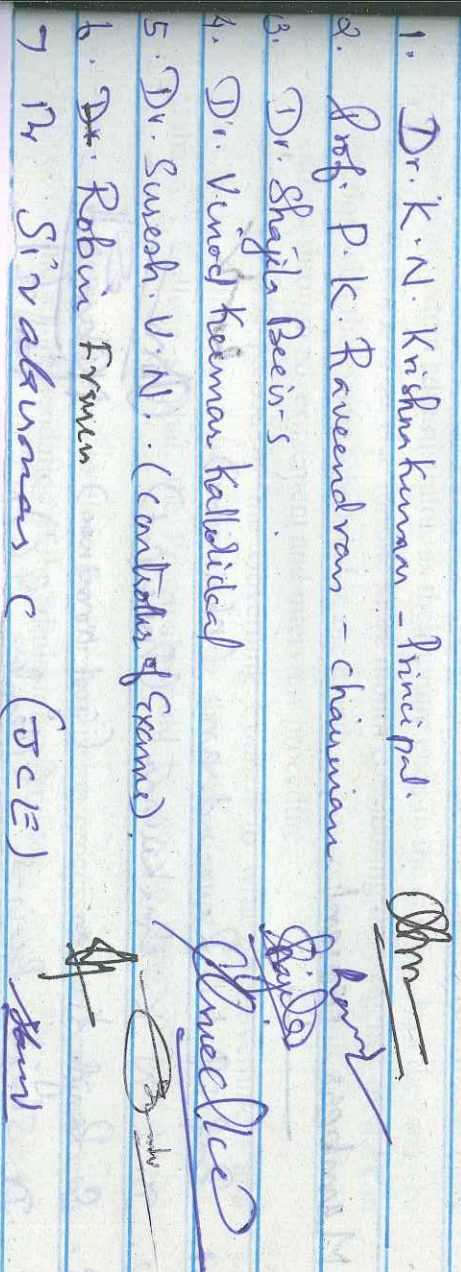 1. Dr. K. N. Krishnakumar - Principal.
2. Prof. P. K. Raveendran - Chairman
3. Dr. Shajila Beevi. S
4. Dr. Vinod Kumar Kallolickal
5. Dr. Suresh. V. N. (Controller of Exams)
6. Dr. Robin Francis
7 Dr. Sivakumar C (JCE)